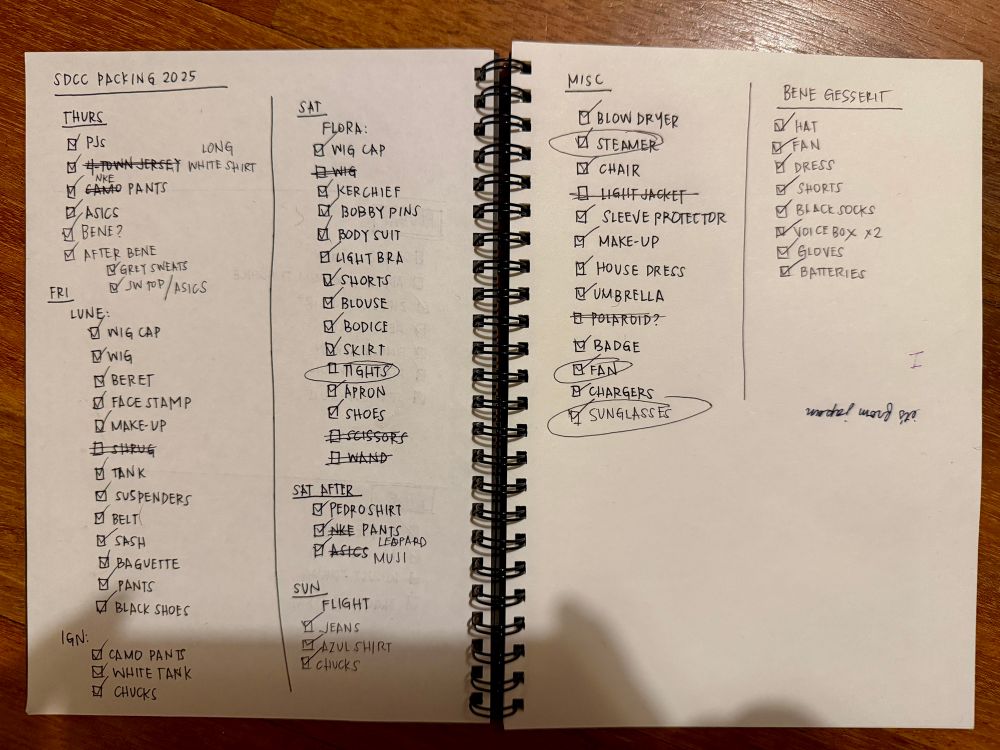 SDCC PACKING 2025
THURS
PJs
4-TOWN JERSEY LONG WHITE SHIRT
CAMO NKE PANTS
ASICS
BENE?
AFTER BENE
GREY SWEATS
JW TOP / ASICS
FRI
LUNE:
WIG CAP
WIG
BERET
FACE STAMP
MAKE-UP
SHRUG
TANK
SUSPENDERS
BELT
SASH
BAGUETTE
PANTS
BLACK SHOES
IGN:
CAMO PANTS
WHITE TANK
CHUCKS
SAT
FLORA:
WIG CAP
WIG
KERCHIEF
BOBBY PINS
BODY SUIT
LIGHT BRA
SHORTS
BLOUSE
BODICE
SKIRT
TIGHTS
APRON
SHOES
SCISSORS
WAND
SAT AFTER
PEDRO SHIRT
NKE PANTS
ASICS LEOPARD MUJI
SUN
FLIGHT
JEANS
AZUL SHIRT
CHUCKS
MISC
BLOW DRYER
STEAMER
CHAIR
LIGHT JACKET
SLEEVE PROTECTOR
MAKE-UP
HOUSE DRESS
UMBRELLA
POLAROID?
BADGE
FAN
CHARGERS
SUNGLASSES
BENE GESSERIT
HAT
FAN
DRESS
SHORTS
BLACK SOCKS
VOICE BOX x2
GLOVES
BATTERIES
I
it's from japan